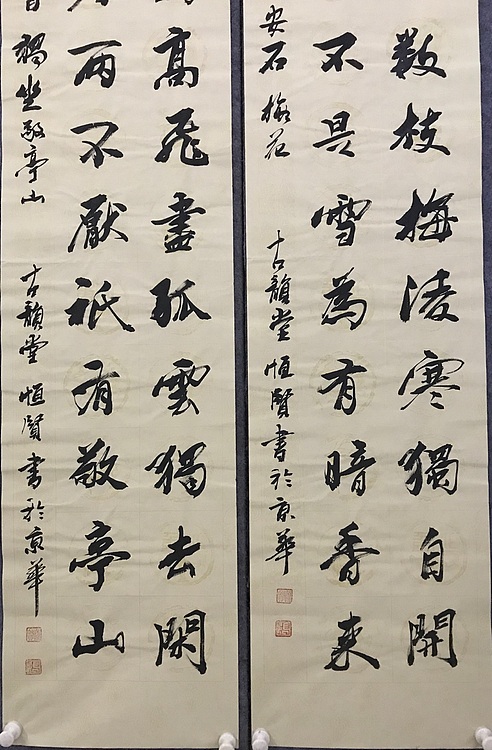 数枝梅凌寒獨自開
不是雪為有暗香來
安石 梅花 古韻堂 恒賢書於京華
高飛盡孤雲獨去閑
兩不厭祗有敬亭山
獨坐敬亭山 古韻堂 恒賢書於京華